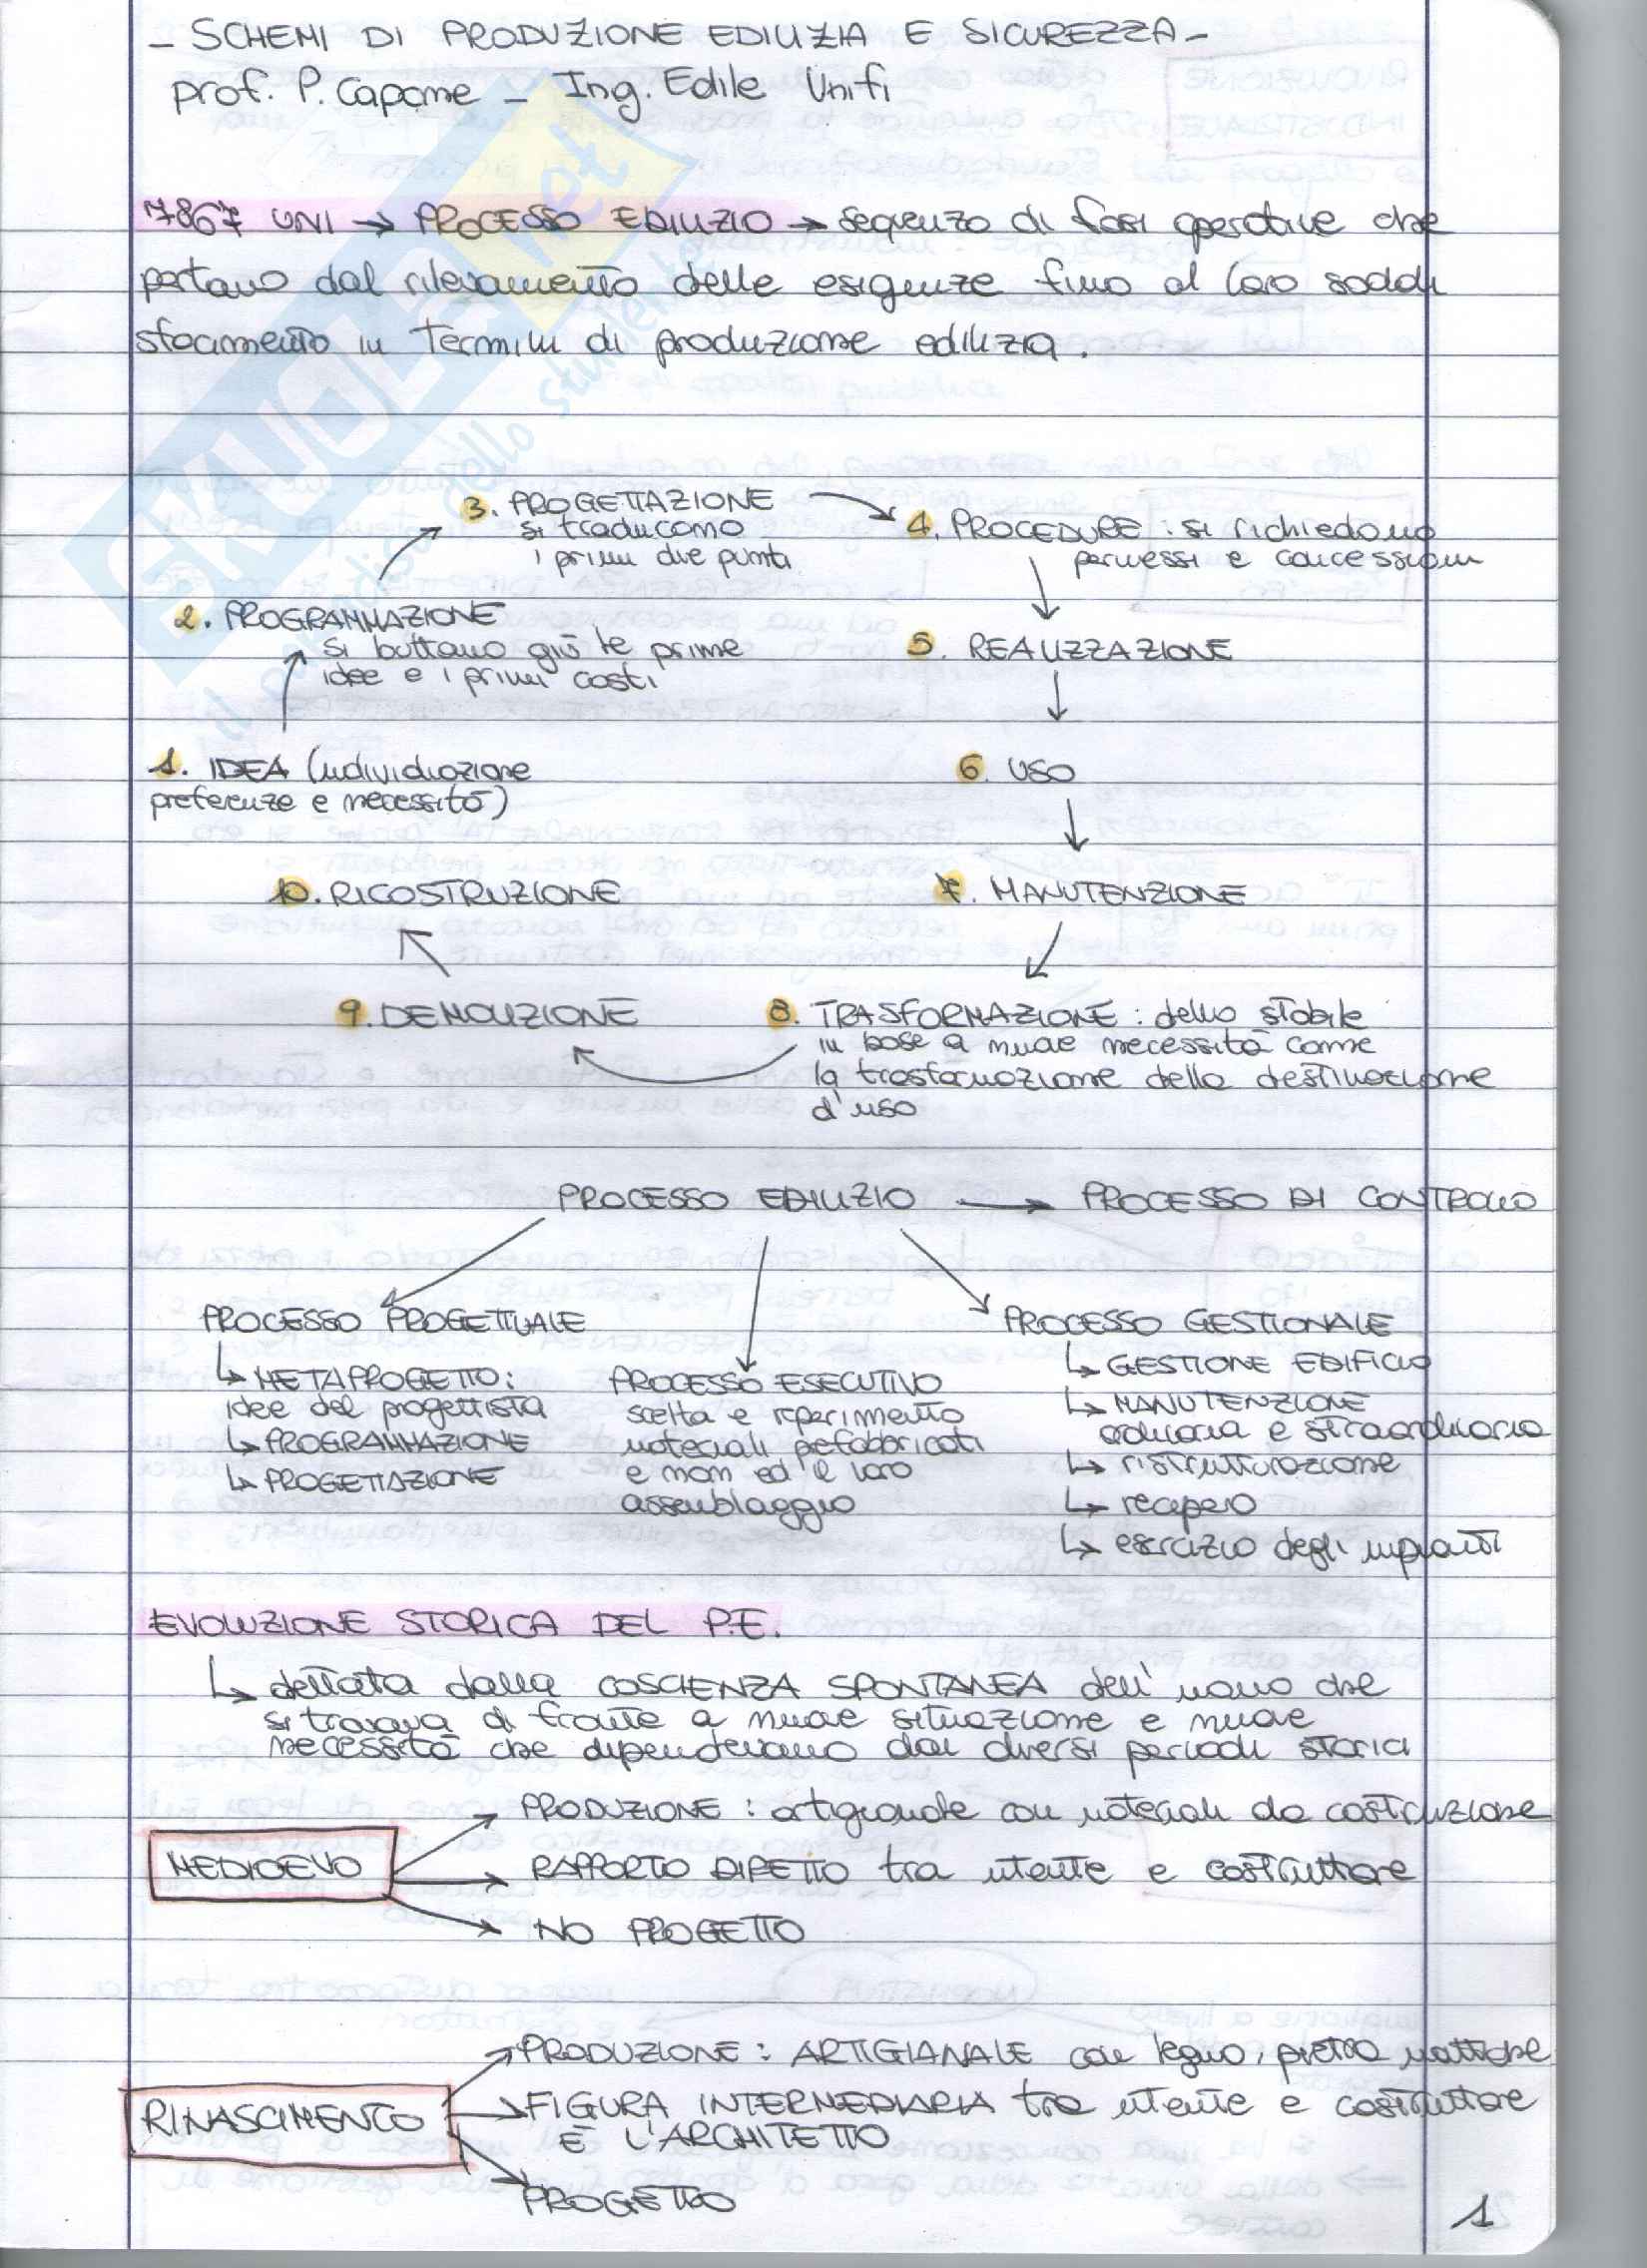 - SCHEMI DI PRODUZIONE EDILIZIA E SICUREZZA -
prof. P. Capone - Ing. Edile Unifi
7867 UNI → PROCESSO EDILIZIO → sequenza di fasi operative che
portano dal rilevamento delle esigenze fino al loro soddi
sfacimento in termini di produzione edilizia.
3. PROGETTAZIONE
si traducono
i primi due punti
4. PROCEDURE : si richiedono
permessi e concessioni
2. PROGRAMMAZIONE
si buttano giù le prime
idee e i primi costi
5. REALIZZAZIONE
1. IDEA (individuazione
preferenze e necessità)
6. USO
10. RICOSTRUZIONE
7. MANUTENZIONE
9. DEMOLIZIONE
8. TRASFORMAZIONE : dello stabile
in base a nuove necessità come
la trasformazione della destinazione
d'uso
PROCESSO EDILIZIO → PROCESSO DI CONTROLLO
PROCESSO PROGETTUALE
↳ METAPROGETTO:
idee del progettista
↳ PROGRAMMAZIONE
↳ PROGETTAZIONE
PROCESSO ESECUTIVO
scelta e reperimento
materiali prefabbricati
e non ed il loro
assemblaggio
PROCESSO GESTIONALE
↳ GESTIONE EDIFICIO
↳ MANUTENZIONE
ordinaria e straordinaria
↳ ristrutturazione
↳ recupero
↳ esercizio degli impianti
EVOLUZIONE STORICA DEL P.E.
↳ dettata dalla COSCIENZA SPONTANEA dell'uomo che
si trovava di fronte a nuove situazione e nuove
necessità che dipendevano dai diversi periodi storici
MEDIOEVO
PRODUZIONE : artigianale con materiali da costruzione
RAPPORTO DIRETTO tra utente e costruttore
NO PROGETTO
RINASCIMENTO
PRODUZIONE : ARTIGIANALE con legno, pietra mattone
FIGURA INTERMEDIARIA tra utente e costruttore
È L'ARCHITETTO
PROGETTO
1
SKUOLA.net
il paradiso dello studente